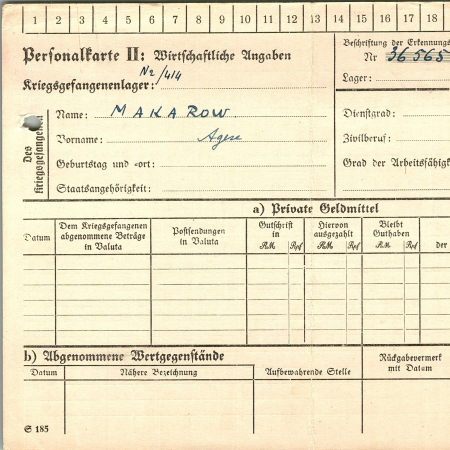 1 2 3 4 5 6 7 8 9 10 11 12 13 14 15 16 17 18
Personalkarte II: Wirtschaftliche Angaben
Beschriftung der Erkennungs
Nr 36565
Kriegsgefangenenlager: No/414
Lager:
Des Kriegsgefangenen
Name: MAKAROW
Dienstgrad:
Vorname:
Zivilberuf:
Geburtstag und -ort:
Grad der Arbeitsfähigk
Staatsangehörigkeit:
a) Private Geldmittel
Datum
Dem Kriegsgefangenen abgenommene Beträge in Valuta
Postsendungen in Valuta
Gutschrift in
RM Rpf
Hiervon ausgezahlt
RM Rpf
Bleibt Guthaben
RM Rpf
der
b) Abgenommene Wertgegenstände
Datum
Nähere Bezeichnung
Aufbewahrende Stelle
Rückgabevermerk mit Datum
S 185